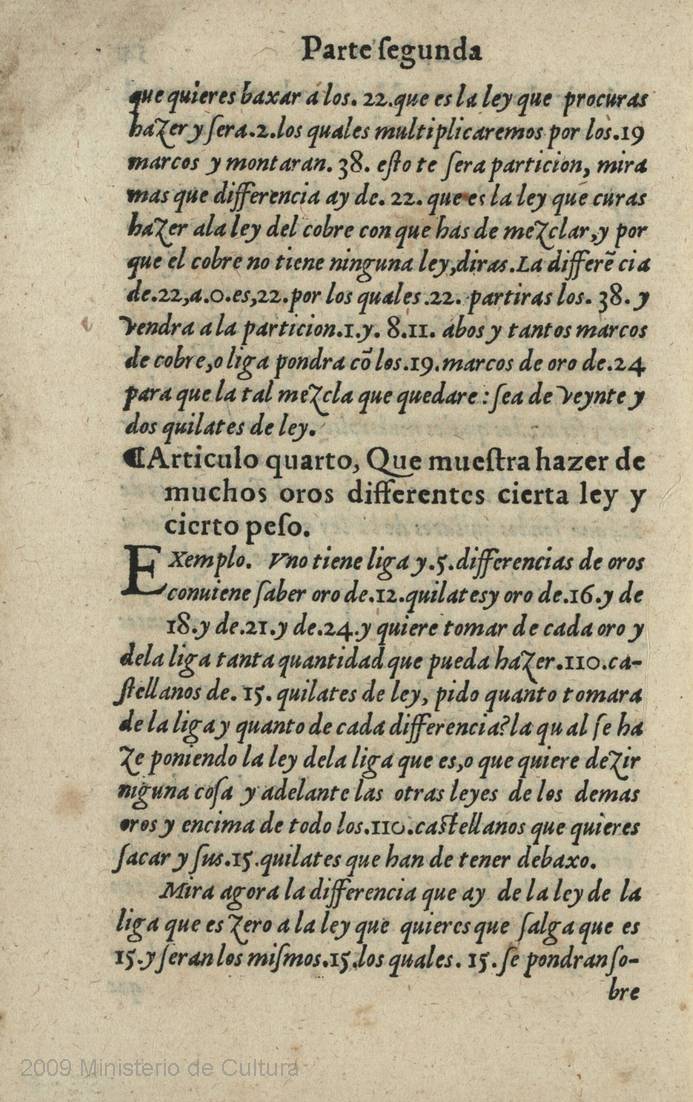 Parte ſegunda
que quieres baxar a los. 22.que es la ley que procuras
hazer y ſera.2.los quales multiplicaremos por los.19
marcos y montaran. 38. eſto te ſera particion, mira
mas que differencia ay de. 22. que es la ley que curas
hazer ala ley del cobre con que has de mezclar,y por
que el cobre no tiene ninguna ley,diras.La differẽ cia
de.22,a.0.es,22.por los quales.22. partiras los. 38. y
vendra a la particion.1.y. 8.11. abos y tantos marcos
de cobre,o liga pondra cõ los.19.marcos de oro de.24
para que la tal mezcla que quedare : ſea de veynte y
dos quilates de ley.
¶Articulo quarto, Que mueſtra hazer de
muchos oros differentes cierta ley y
cierto peſo.
EXemplo. Vno tiene liga y.5.differencias de oros
conuiene ſaber oro de.12.quilatesy oro de.16.y de
18.y de.21.y de.24.y quiere tomar de cada oro y
dela liga tanta quantidad que pueda hazer.110.ca-
ſtellanos de. 15. quilates de ley, pido quanto tomara
de la liga y quanto de cada differencia?la qu al ſe ha
ze poniendo la ley dela liga que es,o que quiere dezir
niguna coſa y adelante las otras leyes de los demas
oros y encima de todo los.110.caſtellanos que quieres
ſacar y ſus.15.quilates que han de tener debaxo.
Mira agora la differencia que ay de la ley de la
liga que es zero a la ley que quieres que ſalga que es
15.y ſeran los miſmos.15.los quales. 15.ſe pondran ſo-
bre
2009 Ministerio de Cultura